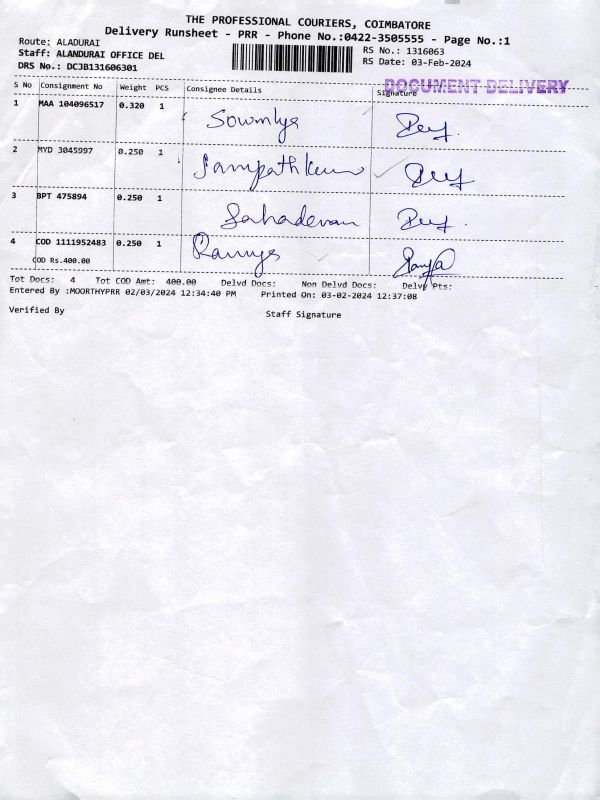 THE PROFESSIONAL COURIERS, COIMBATORE
Delivery Runsheet - PRR - Phone No.:0422-3505555 - Page No.:1
Route: ALADURAI
RS No.: 1316063
Staff: ALANDURAI OFFICE DEL
RS Date: 03-Feb-2024
DRS No.: DCJB131606301
DOCUMENT DELIVERY
S No Consignment No Weight PCS Consignee Details Signature
1 MAA 104096517 0.320 1 Sowmiya
2 MYD 3045997 0.250 1 Sampathkumar
3 BPT 475894 0.250 1 Sahadevan
4 COD 1111952483 0.250 1 Ramya
COD Rs.400.00
Tot Docs: 4 Tot COD Amt: 400.00 Delvd Docs: Non Delvd Docs: Delvd Pts:
Entered By :MOORTHYPRR 02/03/2024 12:34:40 PM Printed On: 03-02-2024 12:37:08
Verified By Staff Signature